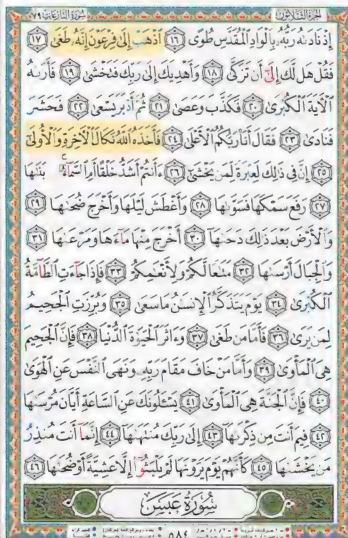 الجزء الثلاثون سورة النازعات ٧٩
إِذْ نَادَىٰهُ رَبُّهُۥ بِٱلْوَادِ ٱلْمُقَدَّسِ طُوًى ١٦ ٱذْهَبْ إِلَىٰ فِرْعَوْنَ إِنَّهُۥ طَغَىٰ ١٧
فَقُلْ هَل لَّكَ إِلَىٰٓ أَن تَزَكَّىٰ ١٨ وَأَهْدِيَكَ إِلَىٰ رَبِّكَ فَتَخْشَىٰ ١٩ فَأَرَىٰهُ
ٱلْءَايَةَ ٱلْكُبْرَىٰ ٢٠ فَكَذَّبَ وَعَصَىٰ ٢١ ثُمَّ أَدْبَرَ يَسْعَىٰ ٢٢ فَحَشَرَ
فَنَادَىٰ ٢٣ فَقَالَ أَنَا۠ رَبُّكُمُ ٱلْأَعْلَىٰ ٢٤ فَأَخَذَهُ ٱللَّهُ نَكَالَ ٱلْءَاخِرَةِ وَٱلْأُولَىٰٓ
٢٥ إِنَّ فِى ذَٰلِكَ لَعِبْرَةً لِّمَن يَخْشَىٰٓ ٢٦ ءَأَنتُمْ أَشَدُّ خَلْقًا أَمِ ٱلسَّمَآءُ ۚ بَنَىٰهَا
٢٧ رَفَعَ سَمْكَهَا فَسَوَّىٰهَا ٢٨ وَأَغْطَشَ لَيْلَهَا وَأَخْرَجَ ضُحَىٰهَا ٢٩
وَٱلْأَرْضَ بَعْدَ ذَٰلِكَ دَحَىٰهَآ ٣٠ أَخْرَجَ مِنْهَا مَآءَهَا وَمَرْعَىٰهَا ٣١
وَٱلْجِبَالَ أَرْسَىٰهَا ٣٢ مَتَٰعًا لَّكُمْ وَلِأَنْعَٰمِكُمْ ٣٣ فَإِذَا جَآءَتِ ٱلطَّآمَّةُ
ٱلْكُبْرَىٰ ٣٤ يَوْمَ يَتَذَكَّرُ ٱلْإِنسَٰنُ مَا سَعَىٰ ٣٥ وَبُرِّزَتِ ٱلْجَحِيمُ
لِمَن يَرَىٰ ٣٦ فَأَمَّا مَن طَغَىٰ ٣٧ وَءَاثَرَ ٱلْحَيَوٰةَ ٱلدُّنْيَا ٣٨ فَإِنَّ ٱلْجَحِيمَ
هِىَ ٱلْمَأْوَىٰ ٣٩ وَأَمَّا مَنْ خَافَ مَقَامَ رَبِّهِۦ وَنَهَى ٱلنَّفْسَ عَنِ ٱلْهَوَىٰ
٤٠ فَإِنَّ ٱلْجَنَّةَ هِىَ ٱلْمَأْوَىٰ ٤١ يَسْـَٔلُونَكَ عَنِ ٱلسَّاعَةِ أَيَّانَ مُرْسَىٰهَا
٤٢ فِيمَ أَنتَ مِن ذِكْرَىٰهَآ ٤٣ إِلَىٰ رَبِّكَ مُنتَهَىٰهَآ ٤٤ إِنَّمَآ أَنتَ مُنذِرُ
مَن يَخْشَىٰهَا ٤٥ كَأَنَّهُمْ يَوْمَ يَرَوْنَهَا لَمْ يَلْبَثُوٓا۟ إِلَّا عَشِيَّةً أَوْ ضُحَىٰهَا ٤٦
سُورَةُ عَبَسَ
٥٨٤